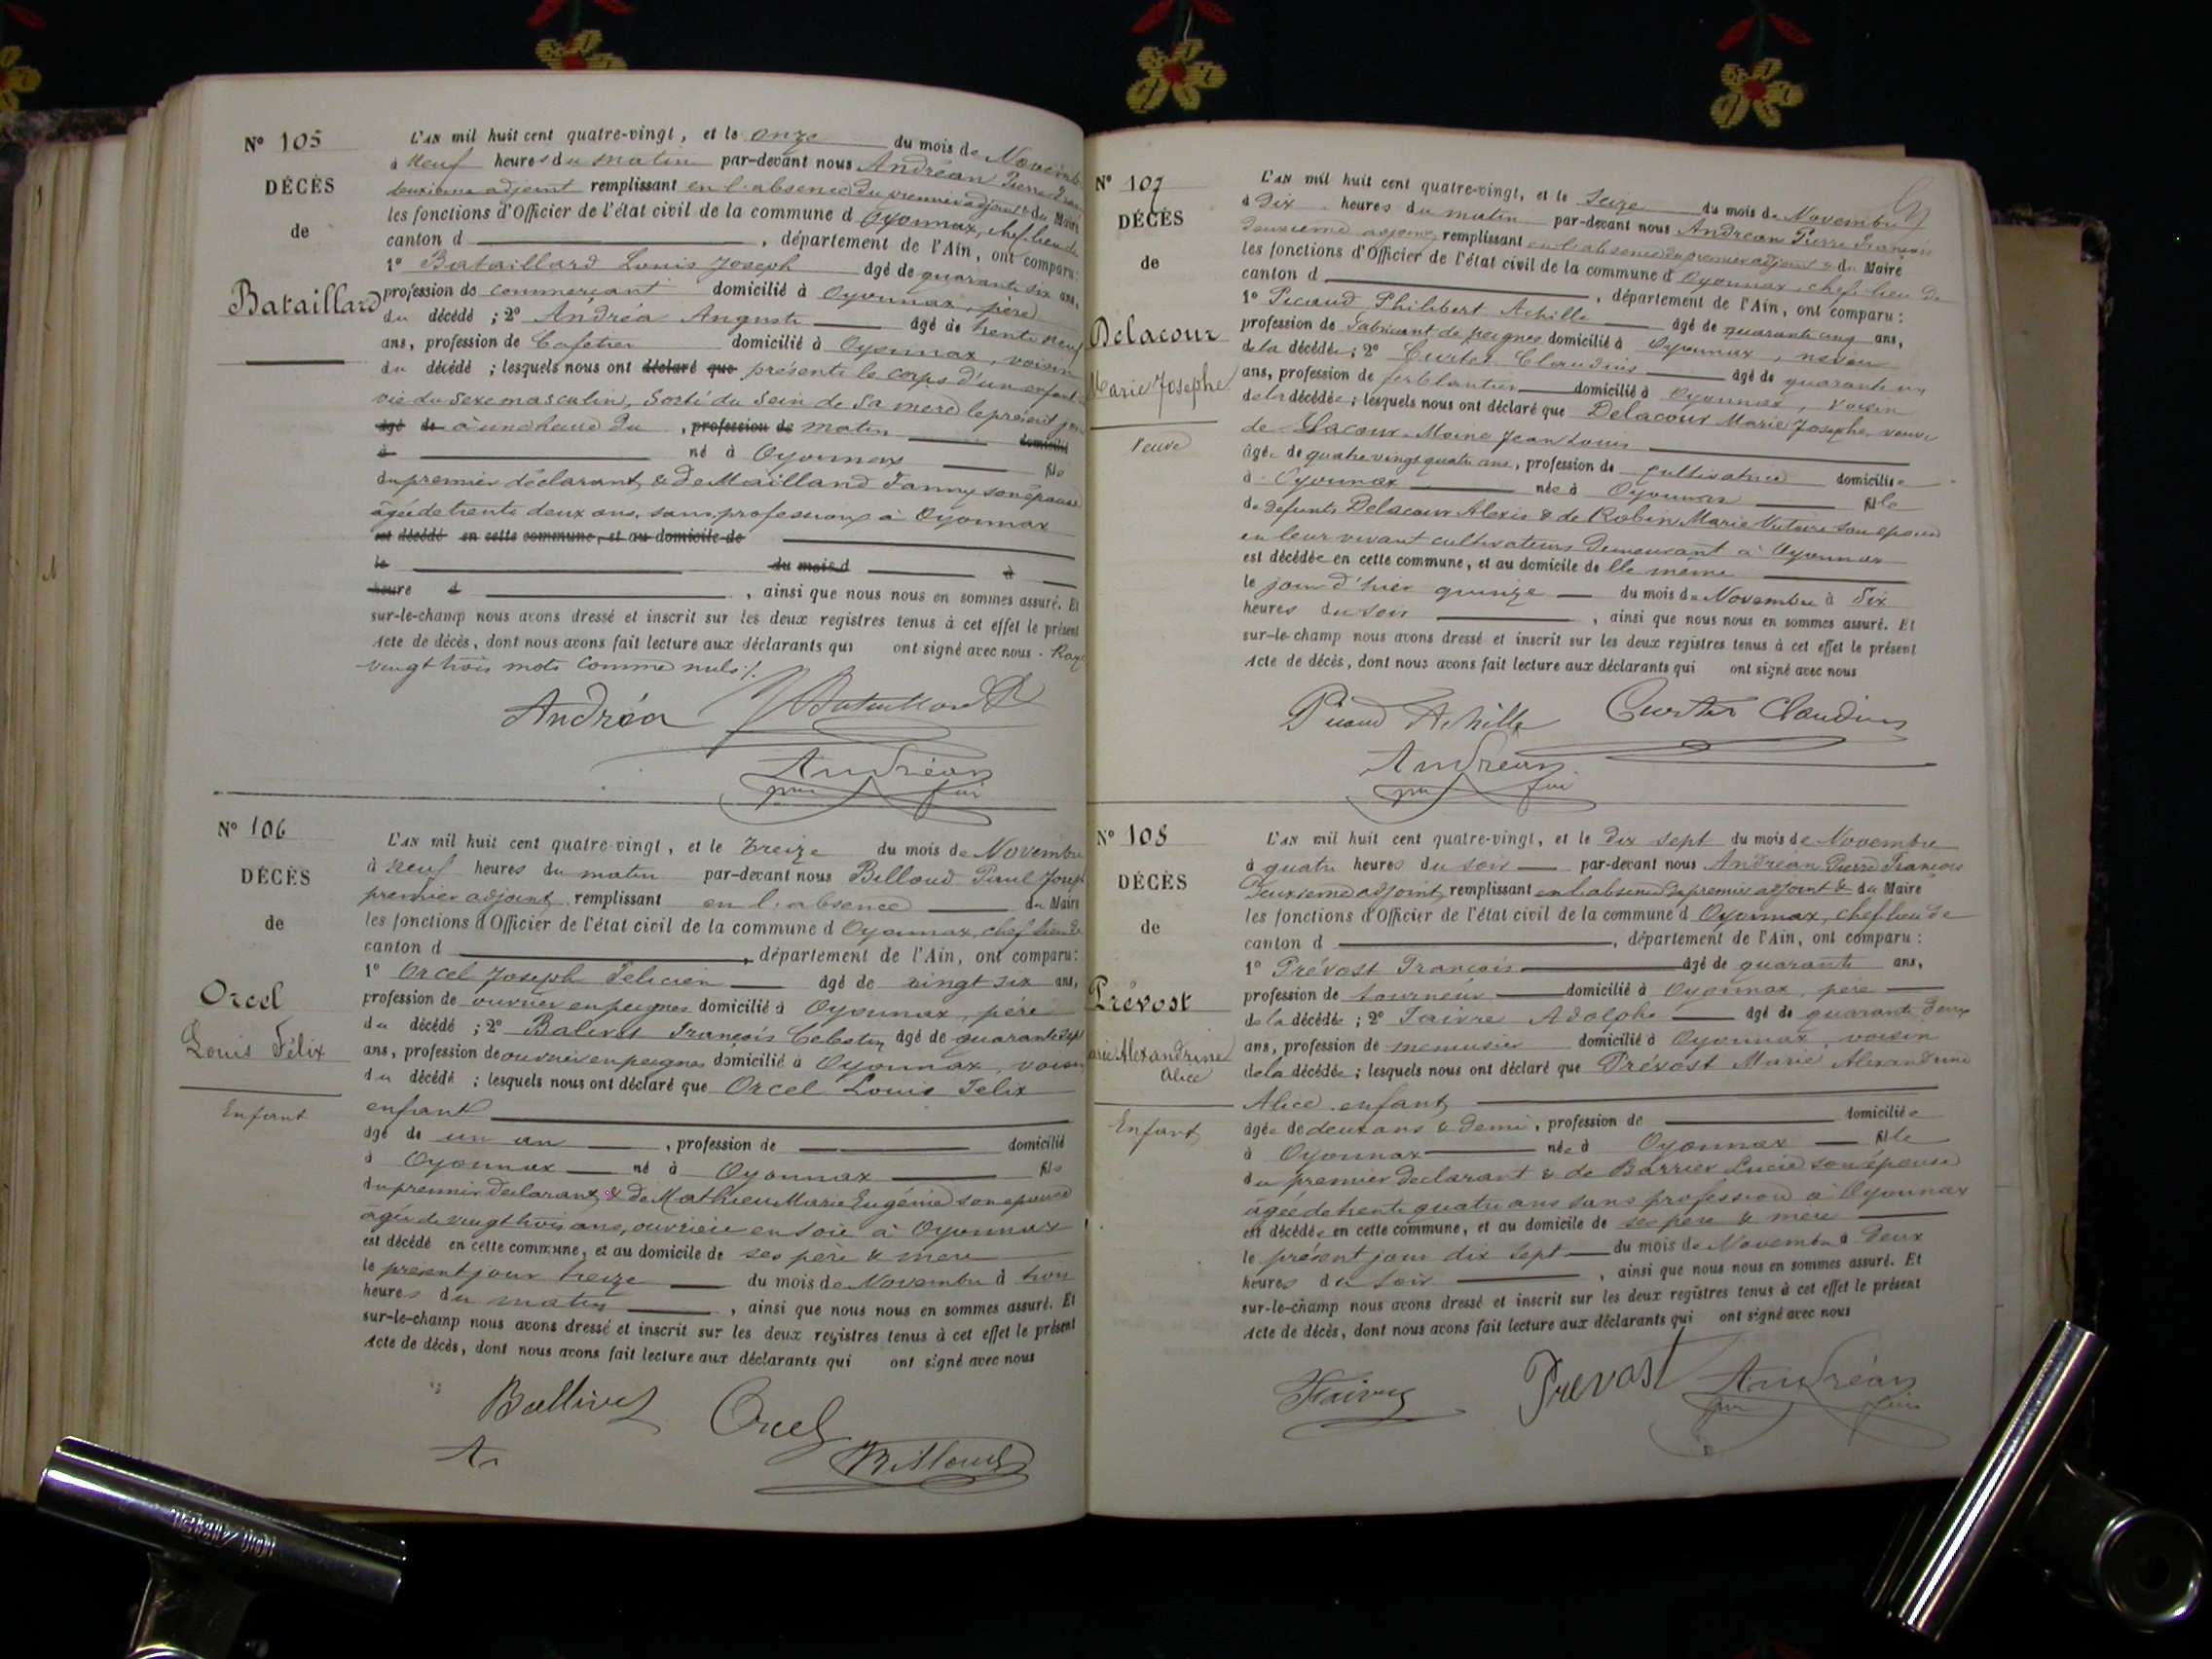 Nº 105
DÉCÈS
de
Bataillard
L'AN mil huit cent quatre-vingt, et le onze du mois de Novembre
à neuf heures du matin par-devant nous Andréan Pierre
deuxième adjoint remplissant en l'absence du premier adjoint & du Maire
les fonctions d'Officier de l'état civil de la commune d Oyonnax, chef-lieu de
canton d , département de l'Ain, ont comparu:
1º Bataillard Louis Joseph âgé de quarante six ans,
profession de commerçant domicilié à Oyonnax, père
du décédé ; 2º Andréa Auguste âgé de trente neuf
ans, profession de Cafetier domicilié à Oyonnax, voisin
du décédé ; lesquels nous ont déclaré que présenté le corps d'un enfant sans
vie du sexe masculin, sorti du sein de sa mère le présent jour
âgé de à une heure du , profession de matin domicilié
à né à Oyonnax fils
du premier déclarant, & de Mailland Fanny son épouse
âgée de trente deux ans, sans profession à Oyonnax
est décédé en cette commune, et au domicile de
le du mois d à
heure d , ainsi que nous nous en sommes assuré. Et
sur-le-champ nous avons dressé et inscrit sur les deux registres tenus à cet effet le présent
Acte de décès, dont nous avons fait lecture aux déclarants qui ont signé avec nous. Rayé
vingt trois mots comme nuls ./.
Andréa Bataillard
Andréan
Nº 106
DÉCÈS
de
Orcel
Louis Félix
Enfant
L'AN mil huit cent quatre-vingt, et le treize du mois de Novembre
à neuf heures du matin par-devant nous Billoud Paul Joseph
premier adjoint, remplissant en l'absence du Maire
les fonctions d'Officier de l'état civil de la commune d Oyonnax, chef lieu de
canton d , département de l'Ain, ont comparu:
1º Orcel Joseph Felicien âgé de vingt six ans,
profession de ouvrier en peignes domicilié à Oyonnax, père
du décédé ; 2º Balivet François Celestin âgé de quarante sept
ans, profession de ouvrier en peignes domicilié à Oyonnax, voisin
du décédé ; lesquels nous ont déclaré que Orcel Louis Felix
enfant
âgé de un an , profession de domicilié
à Oyonnax né à Oyonnax fils
du premier déclarant, & de Mathieu Marie Eugénie son épouse
âgée de vingt trois ans, ouvrière en soie à Oyonnax
est décédé en cette commune, et au domicile de ses père & mère
le présent jour treize du mois de Novembre à trois
heures du matin , ainsi que nous nous en sommes assuré. Et
sur-le-champ nous avons dressé et inscrit sur les deux registres tenus à cet effet le présent
Acte de décès, dont nous avons fait lecture aux déclarants qui ont signé avec nous
Ballivet Orcel
Billoud
Nº 107
DÉCÈS
de
Delacour
Marie Josephe
Veuve
L'AN mil huit cent quatre-vingt, et le Seize du mois de Novembre
à Dix heures du matin par-devant nous Andréan Pierre François
deuxième adjoint, remplissant en l'absence du premier adjoint & du Maire
les fonctions d'Officier de l'état civil de la commune d Oyonnax, chef-lieu de
canton d , département de l'Ain, ont comparu:
1º Picaud Philibert Achille âgé de quarante cinq ans,
profession de fabricant de peignes domicilié à Oyonnax, neveu
de la décédée ; 2º Curtet Claudius âgé de quarante un
ans, profession de ferblantier domicilié à Oyonnax, voisin
de la décédée ; lesquels nous ont déclaré que Delacour Marie Josephe, veuve
de Lacour-Moine Jean Louis
âgée de quatre vingt quatre ans, profession de cultivatrice domiciliée
à Oyonnax née à Oyonnax fille
de défunts Delacour Alexis & de Robin Marie Victoire son épouse
en leur vivant cultivateurs demeurant à Oyonnax
est décédée en cette commune, et au domicile de lle même
le jour d'hier quinze du mois de Novembre à Dix
heures du soir , ainsi que nous nous en sommes assuré. Et
sur-le-champ nous avons dressé et inscrit sur les deux registres tenus à cet effet le présent
Acte de décès, dont nous avons fait lecture aux déclarants qui ont signé avec nous
Picaud Achille Curtet Claudius
Andréan
Nº 108
DÉCÈS
de
Prévost
Marie Alexandrine
Alice
Enfant
L'AN mil huit cent quatre-vingt, et le dix sept du mois de Novembre
à quatre heures du soir par-devant nous Andréan Pierre François
Deuxième adjoint, remplissant en l'absence du premier adjoint & du Maire
les fonctions d'Officier de l'état civil de la commune d Oyonnax, chef lieu de
canton d , département de l'Ain, ont comparu:
1º Prévost François âgé de quarante ans,
profession de tourneur domicilié à Oyonnax, père
de la décédée ; 2º Faivre Adolphe âgé de quarante deux
ans, profession de menuisier domicilié à Oyonnax, voisin
de la décédée ; lesquels nous ont déclaré que Prévost Marie Alexandrine
Alice, enfant,
âgée de deux ans & demi, profession de domiciliée
à Oyonnax née à Oyonnax fille
du premier déclarant & de Barrier Lucie son épouse
âgée de trente quatre ans sans profession à Oyonnax
est décédée en cette commune, et au domicile de ses père & mère
le présent jour dix sept du mois de Novembre à deux
heures du soir , ainsi que nous nous en sommes assuré. Et
sur-le-champ nous avons dressé et inscrit sur les deux registres tenus à cet effet le présent
Acte de décès, dont nous avons fait lecture aux déclarants qui ont signé avec nous
Faivre Prevost Andréan